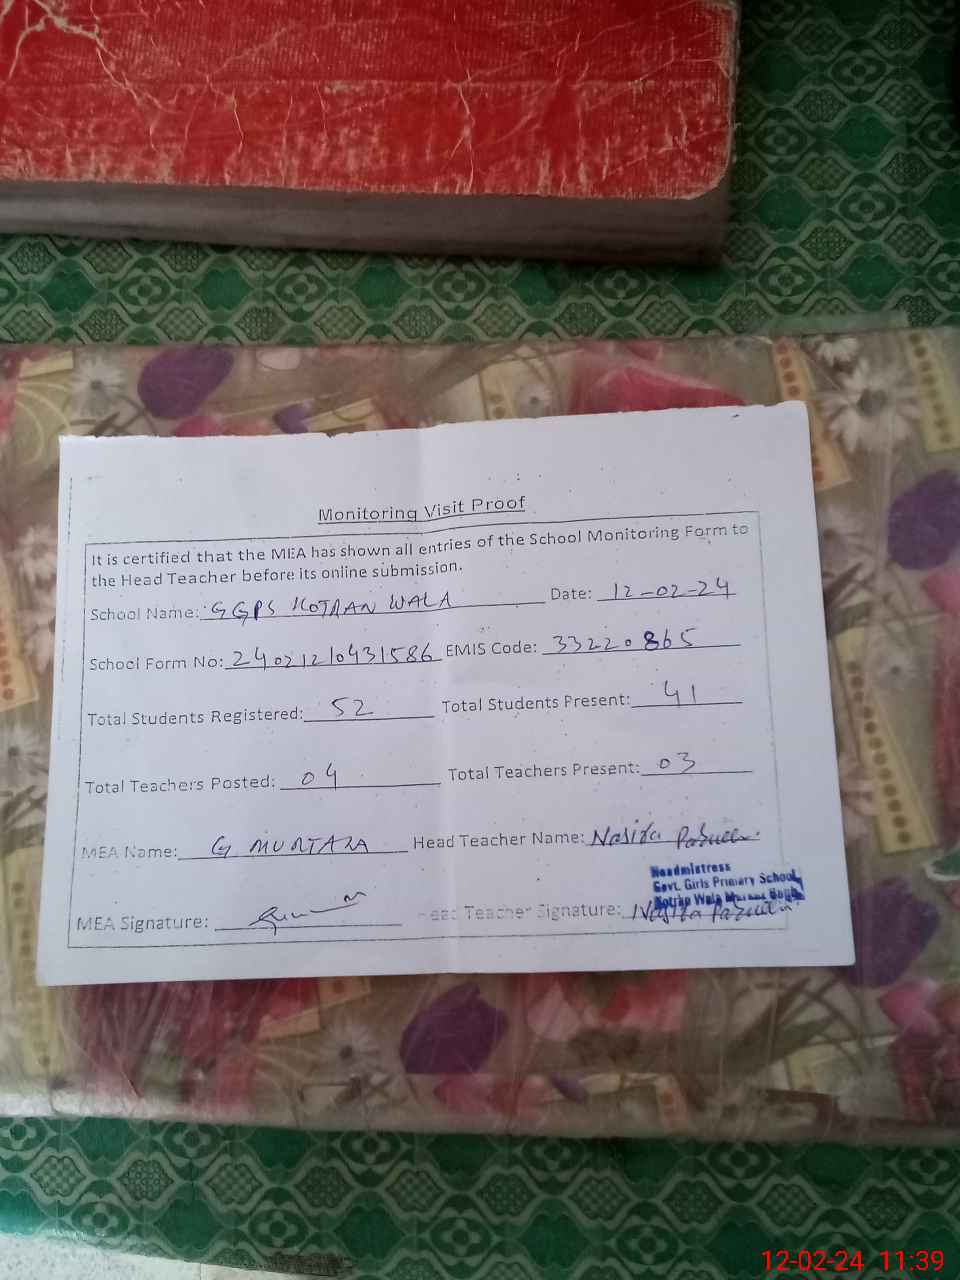 Monitoring Visit Proof
It is certified that the MEA has shown all entries of the School Monitoring Form to
the Head Teacher before its online submission.
School Name: GGPS KOTRAN WALA Date: 12-02-24
School Form No: 24021210431586 EMIS Code: 33220865
Total Students Registered: 52 Total Students Present: 41
Total Teachers Posted: 04 Total Teachers Present: 03
MEA Name: G MURTAZA Head Teacher Name: Nasira Parveen
Headmistress
Govt. Girls Primary School
Kotran Wala
MEA Signature: Head Teacher Signature: Nasira Parveen
12-02-24 11:39